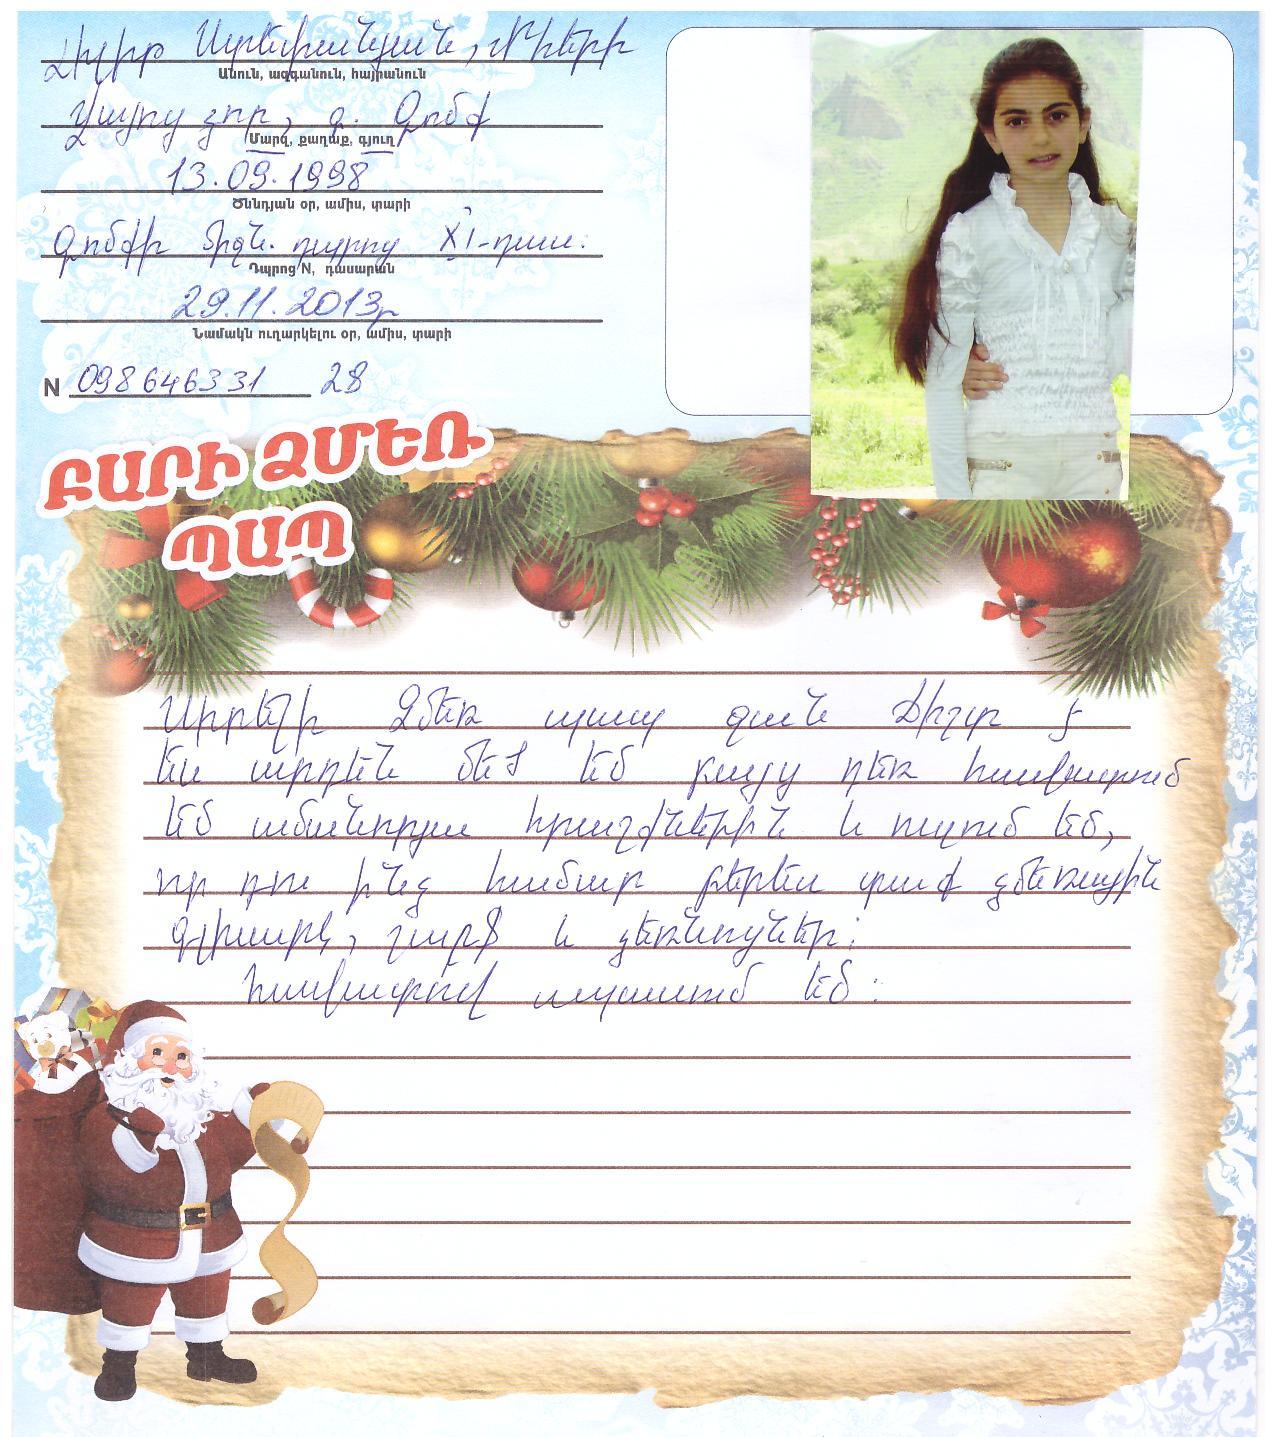 Ստեփանյան, Մհերի
Անուն, ազգանուն, հայրանուն
Վայոց ձոր, գ. Գոմք
Մարզ, քաղաք, գյուղ
13.09.1998
Ծննդյան օր, ամիս, տարի
Գոմքի միջն. դպրոց XI-դաս.
Դպրոց N, դասարան
29.11.2013թ
Նամակն ուղարկելու օր, ամիս, տարի
N 098646331 28
ԲԱՐԻ ՁՄԵՌ
ՊԱՊ
Սիրելի Ձմեռ պապ ջան ճիշտ է
ես արդեն մեծ եմ բայց դեռ հավատում
եմ ամանորյա հրաշքներին և ուզում եմ,
որ դու ինձ համար բերես տաք ձմեռային
գլխարկ, շարֆ և ձեռնոցներ:
Հավատով սպասում եմ: